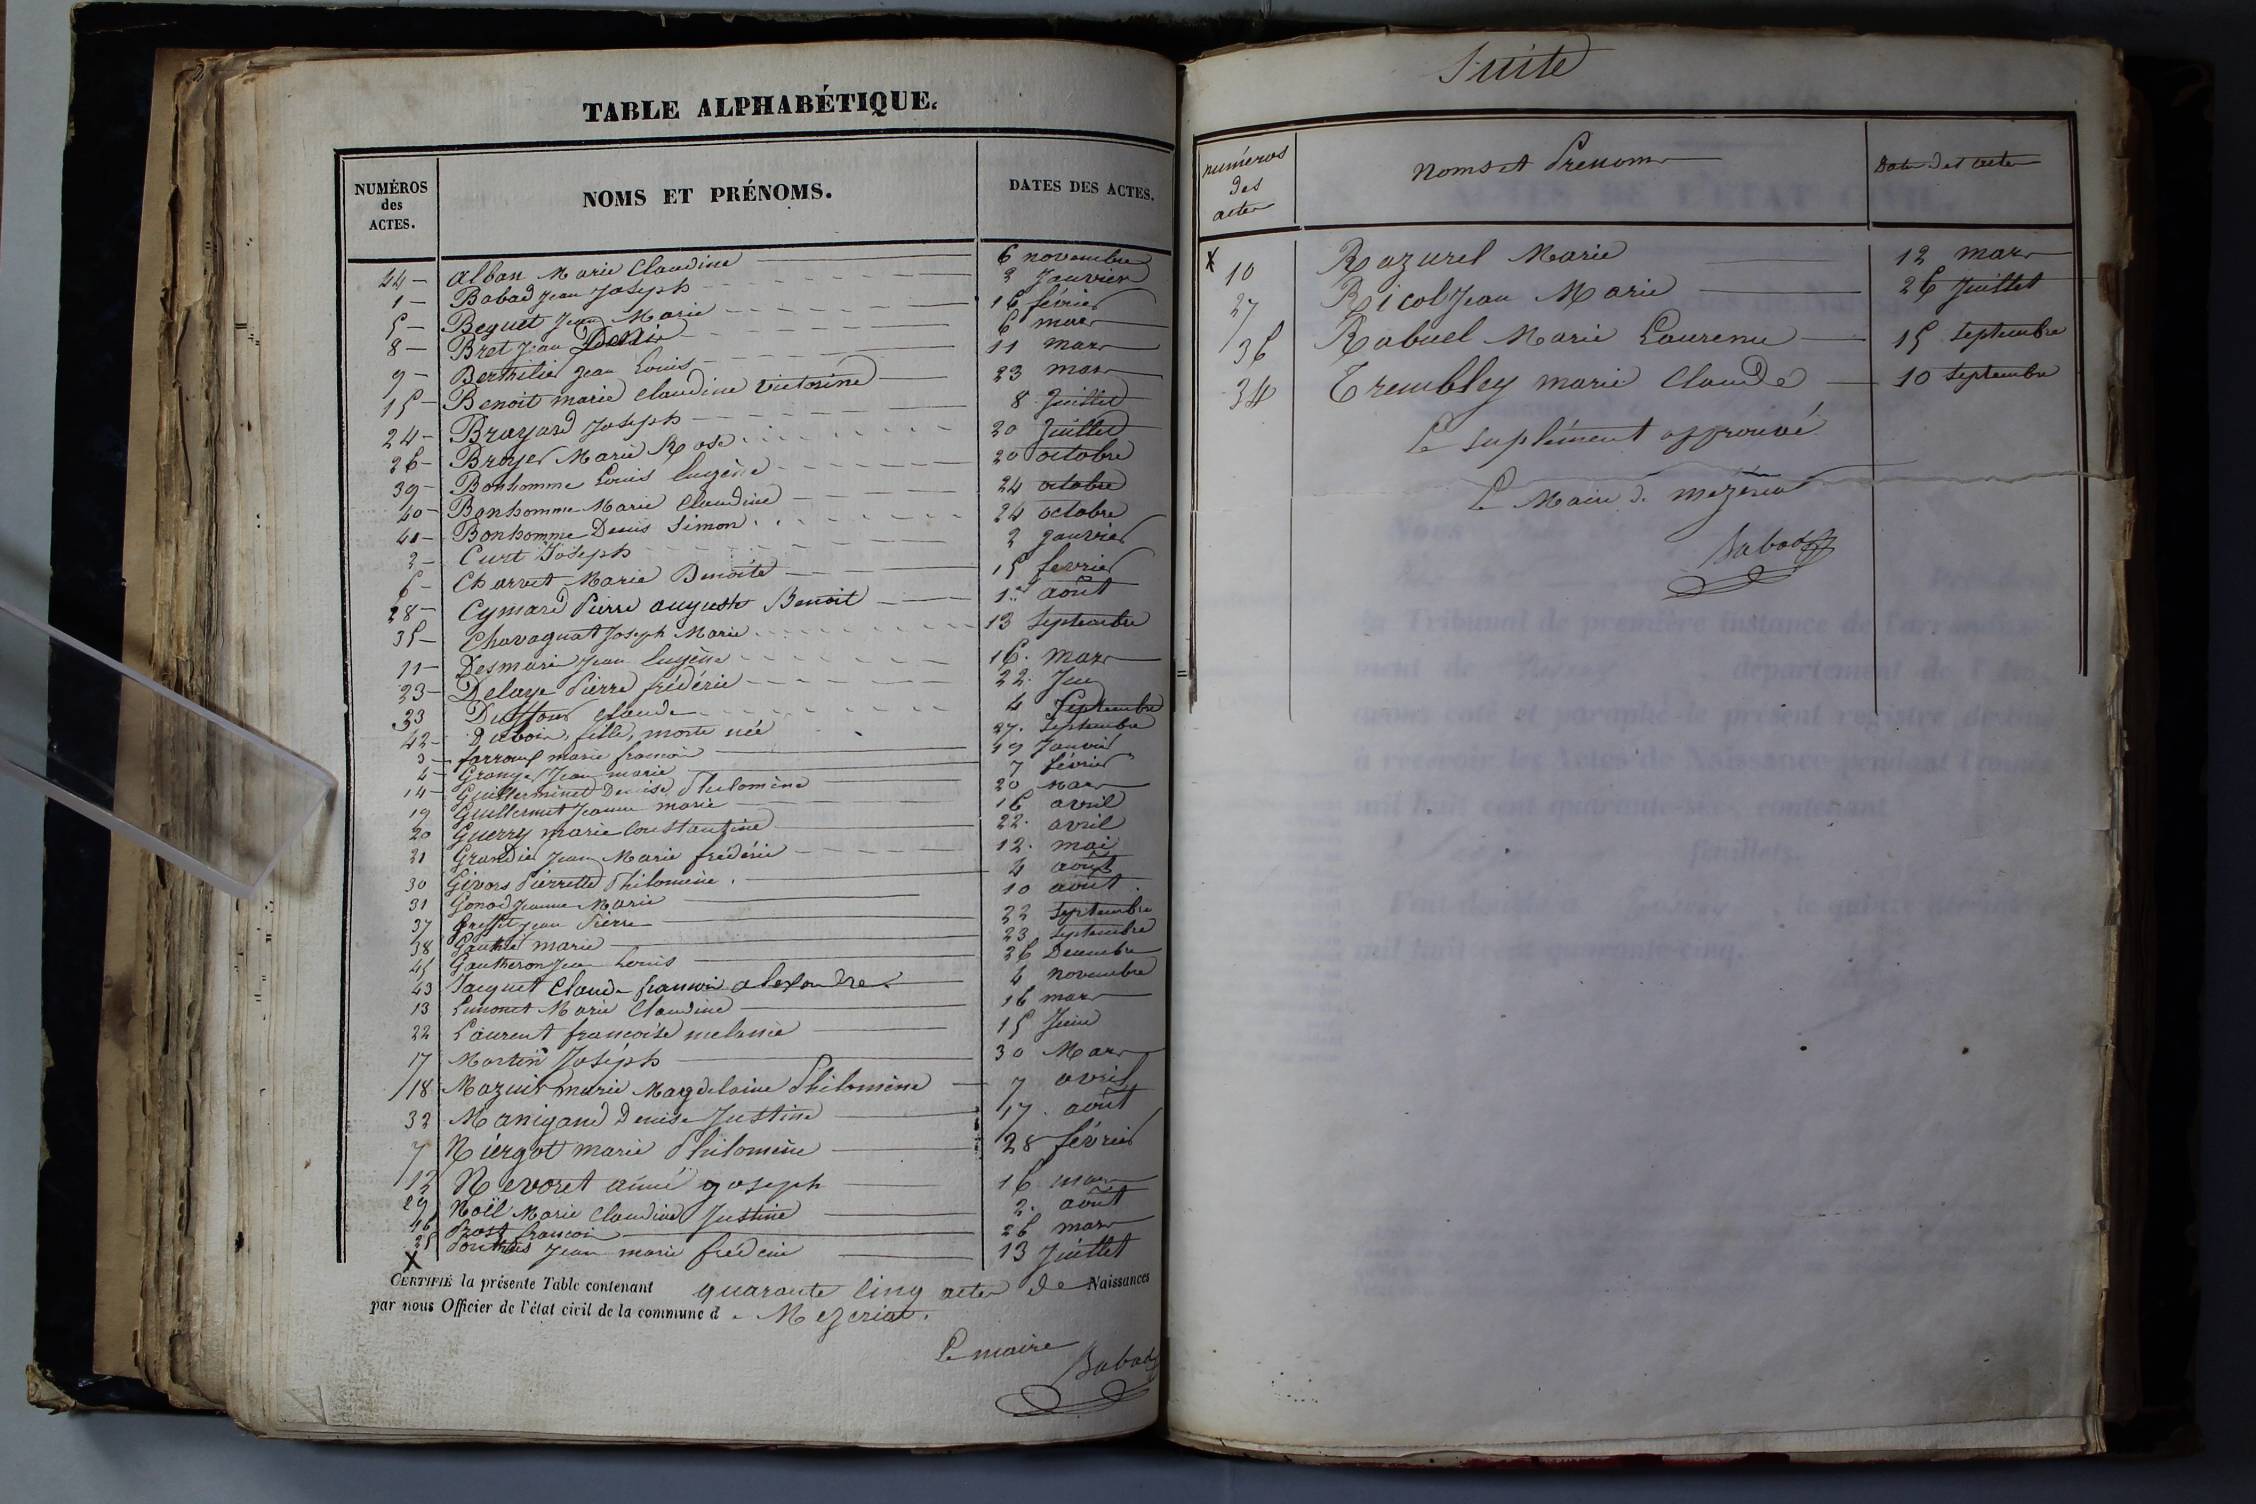 TABLE ALPHABÉTIQUE.
NUMÉROS des ACTES. NOMS ET PRÉNOMS. DATES DES ACTES.
44 - Alban Marie Claudine 6 novembre
1 - Babad Jean Joseph 2 Janvier
5 - Beguet Jean Marie 16 février
8 - Bret Jean Denis 6 mars
9 - Berthilier Jean Louis 11 mars
15 - Benoit marie Claudine Victorine 23 mars
24 - Brayard Joseph 8 Juillet
26 - Broyer Marie Rose 20 Juillet
39 - Bonhomme Louis Eugène 20 octobre
40 - Bonhomme Marie Claudine 24 octobre
41 - Bonhomme Denis Simon 24 octobre
2 - Curt Joseph 2 Janvier
6 - Charvet Marie Benoite 15 fevrier
28 - Cymard Pierre auguste Benoit 1er août
35 - Chavagnat Joseph Marie 13 Septembre
11 - Desmaris Jean Eugène 16. mars
23 - Delaye Pierre frédéric 22. Juin
33 Duffour Claude 4 Septembre
42 - Dubois, fille, morte née 27. Septembre
3 - farrouf marie françois 19 Janvier
4 - Granger Jean marie 7 février
14 - Guillerminet Denise Philomène 20 mars
19 Guillermet Jeanne marie 16 avril
20 Guerry marie Constantine 22. avril
21 Grandie Jean Marie frédéric 12. mai
30 Givors Pierrette Philomène. 4 août
31 Gonod Jeanne Marie 10 août.
37 Jean Pierre 22 Septembre
38 Gauthie marie 23 Septembre
45 Gautheron Jean Louis 26 Decembre
43 Jacquet Claude francois alexandre 4 novembre
13 Limonet Marie Claudine 16 mars
22 Laurent françoise melanie 15 Juin
17 Martin Joseph 30 Mars
18 Mazuit marie Magdelaine Philomène 7 avril
32 Manigand Denise Justine 17. août
7 Niergot marie Philomène 28 février
12 Nevoret aimé Joseph 16 mars
29 Noël Marie Claudine Justine 2. août
16 Prost francois 26 mars
25 Ponthus Jean marie frédéric 13 Juillet
X
CERTIFIÉ la présente Table contenant quarante cinq actes de Naissances
par nous Officier de l'état civil de la commune d. Mezeriat.
Le maire
Babad
Suite
numéros des actes Noms et Prenoms Dates des actes
X 10 Razurel Marie 12 mars
27 Ricol Jean Marie 26 Juillet
36 Rabuel Marie Laurence 15 Septembre
34 Trembley marie Claude 10 Septembre
Le suplément approuvé
Le Maire de mezériat
Babad